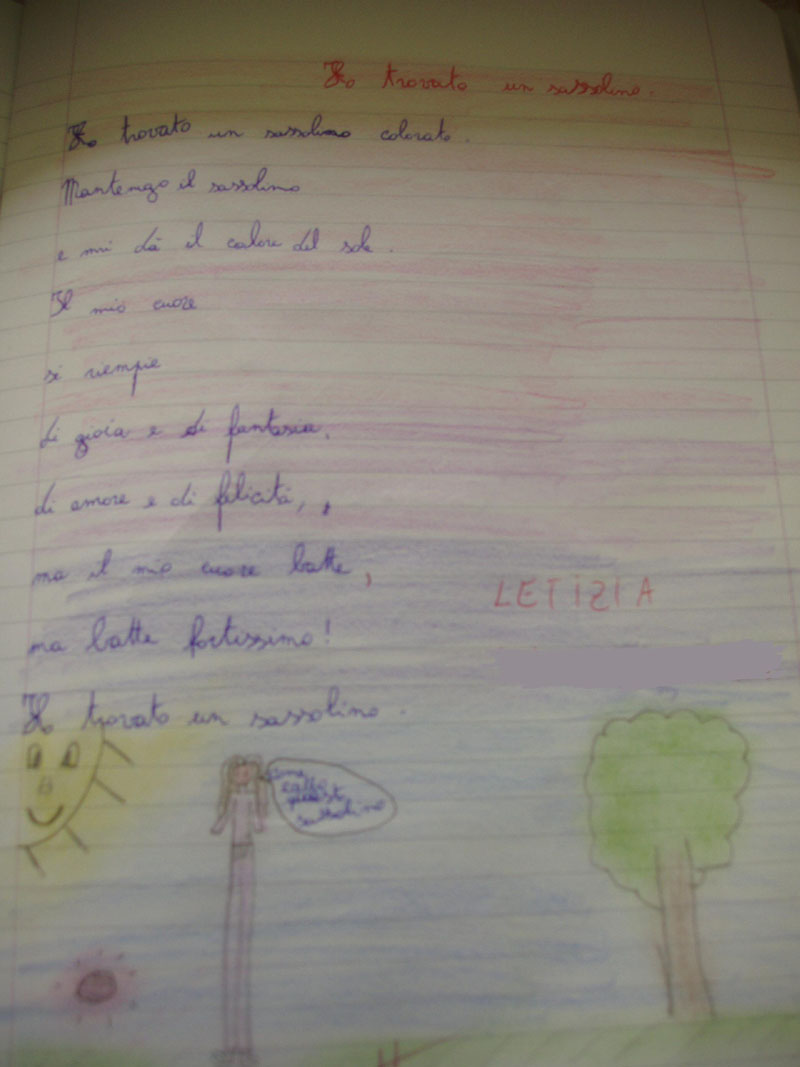 Ho trovato un sassolino.
Ho trovato un sassolino colorato.
Mantengo il sassolino
e mi dà il calore del sole.
Il mio cuore
si riempie
di gioia e di fantasia,
di amore e di felicità,
ma il mio cuore batte,
LETIZIA
ma batte fortissimo!
Ho trovato un sassolino.
sassolino